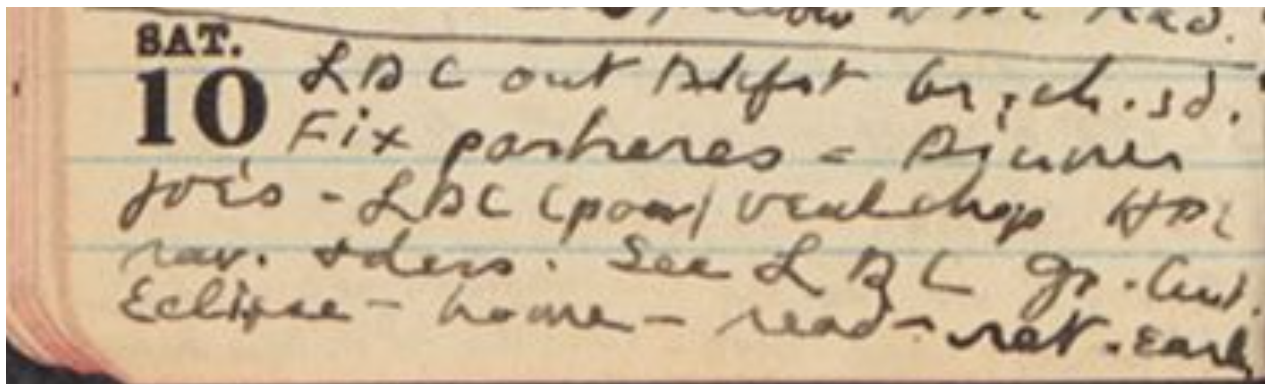 SAT.
10 LDC out Bkfst ch. sd.
Fix portieres - Dinner
Joe's - LDC (poor) vealchop HPL
rav. + dess. See L D C Gr. Cent.
Eclipse - home - read - ret. early